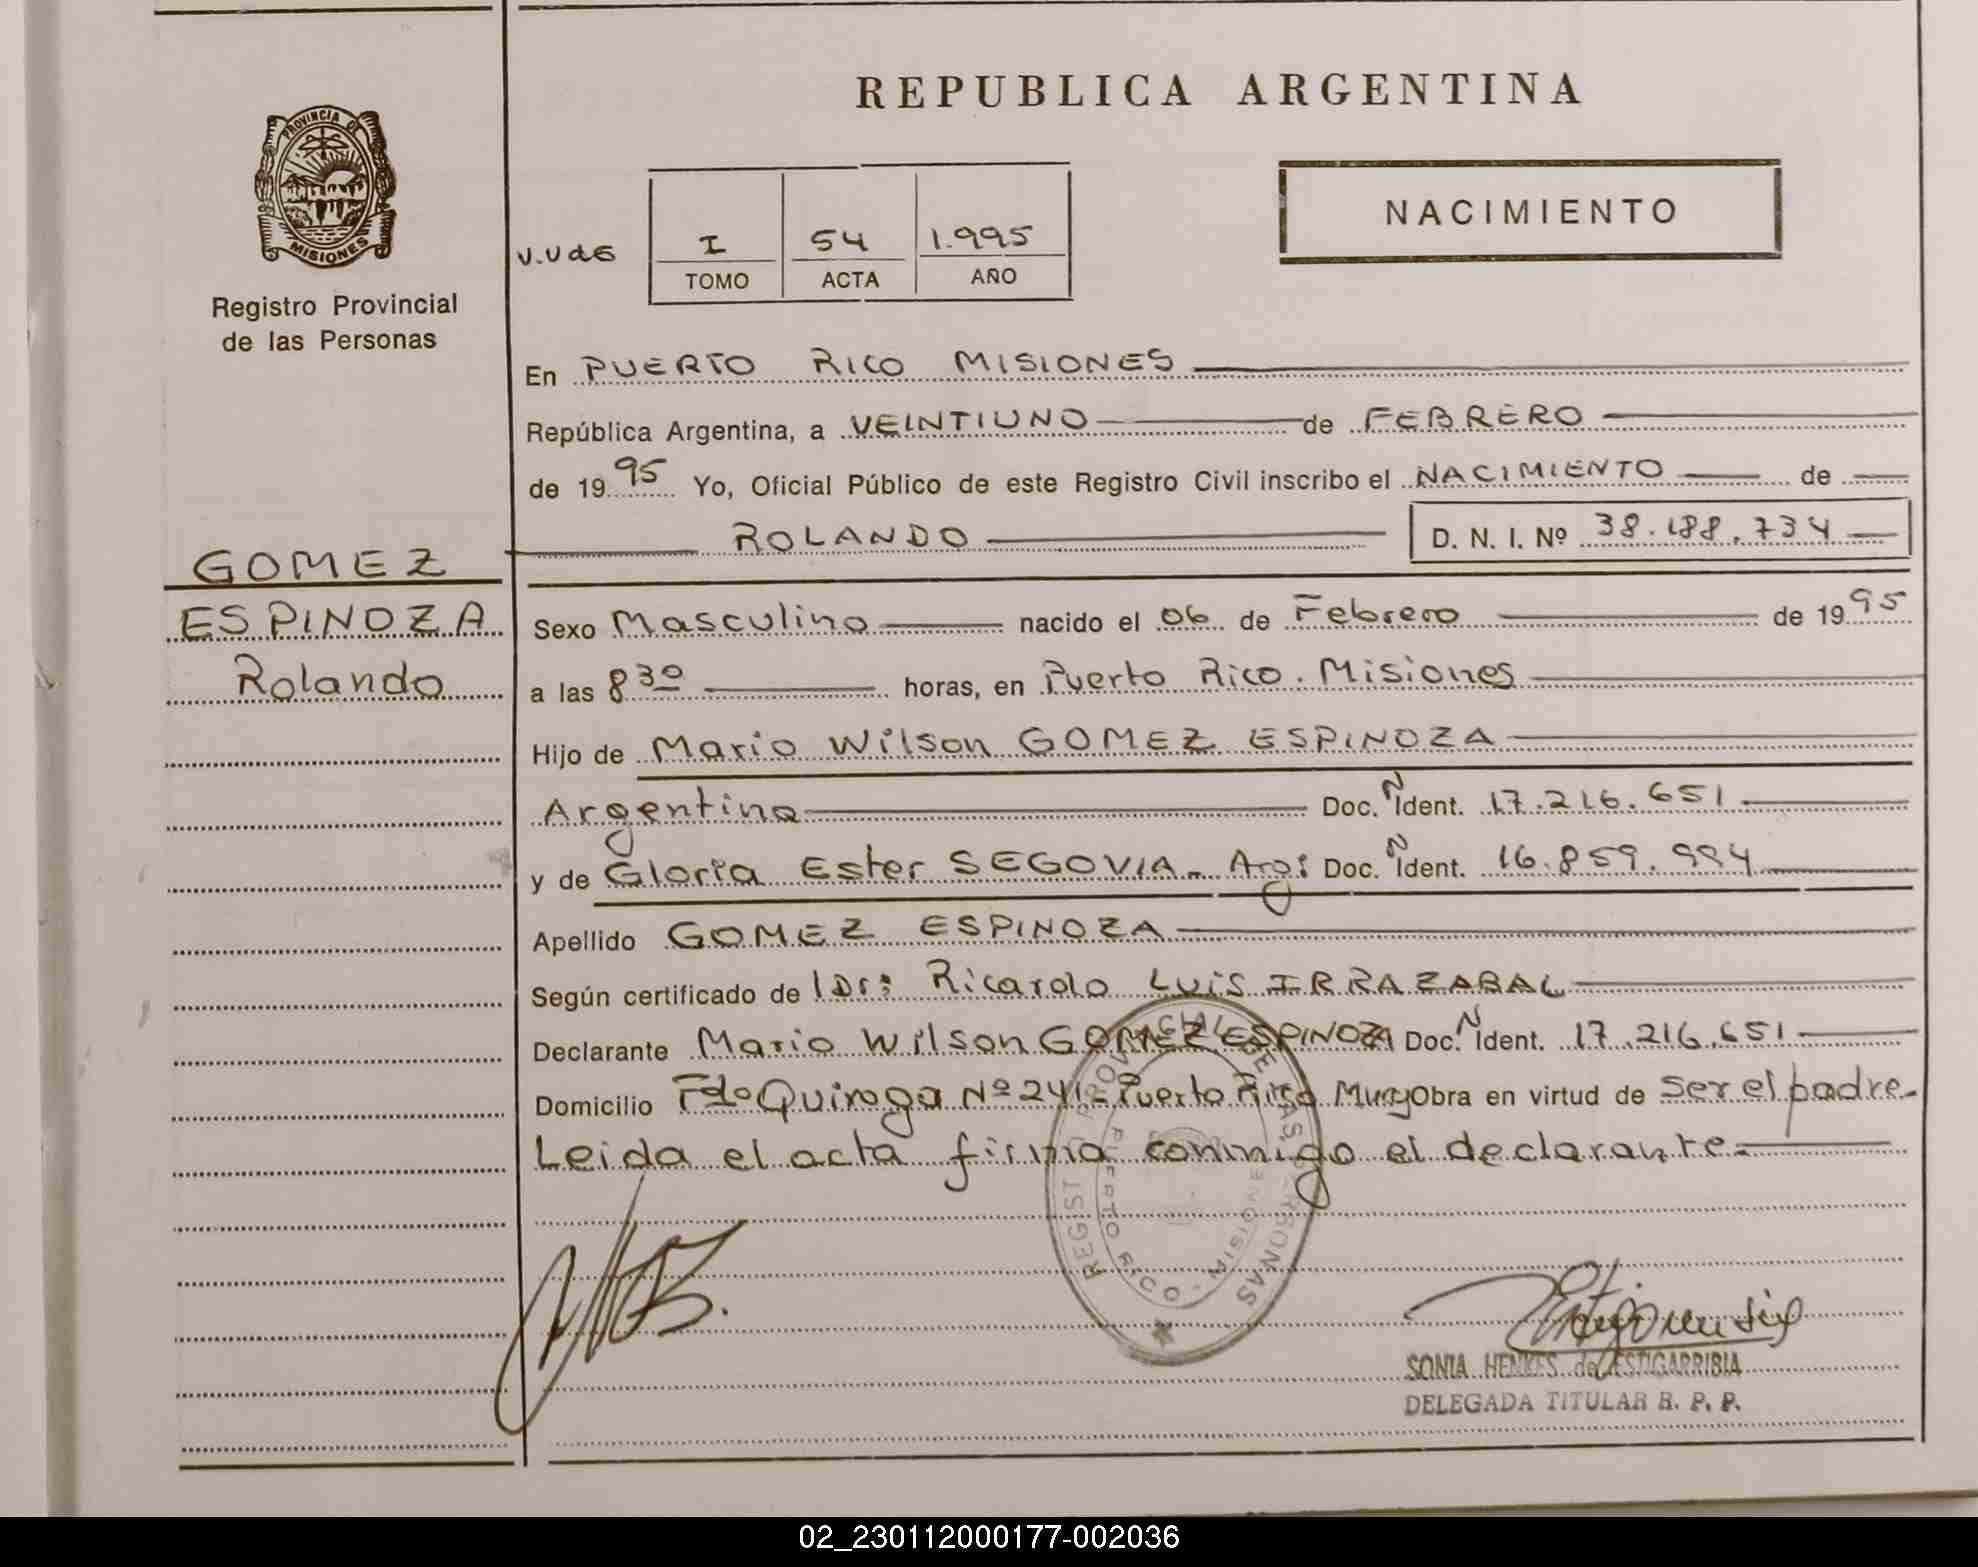 REPUBLICA ARGENTINA
PROVINCIA DE
MISIONES
Registro Provincial
de las Personas
NACIMIENTO
I 54 1.995
TOMO ACTA AÑO
En PUERTO RICO MISIONES
República Argentina, a VEINTIUNO de FEBRERO
de 1995 Yo, Oficial Público de este Registro Civil inscribo el NACIMIENTO de
ROLANDO D. N. I. Nº 38.188.734
GOMEZ
ESPINOZA
Rolando
Sexo Masculino nacido el 06 de Febrero de 1995
a las 8 30 horas, en Puerto Rico. Misiones
Hijo de Mario Wilson GOMEZ ESPINOZA
Argentino Doc. N Ident. 17.216.651
y de Gloria Ester SEGOVIA - Arg: Doc. N Ident. 16.859.994
Apellido GOMEZ ESPINOZA
Según certificado de l Dr: Ricardo Luis IRRAZABAL
Declarante Mario Wilson GOMEZ ESPINOZA Doc. N Ident. 17.216.651
Domicilio Fdo Quiroga Nº 241 - Puerto Rico Obra en virtud de ser el padre.
Leida el acta firma conmigo el declarante.
REGIST PROVINCIAL DE LAS PERSONAS
PUERTO RICO - MISIONES
SONIA HENKES de ESTIGARRIBIA
DELEGADA TITULAR R. P. P.
02_230112000177-002036